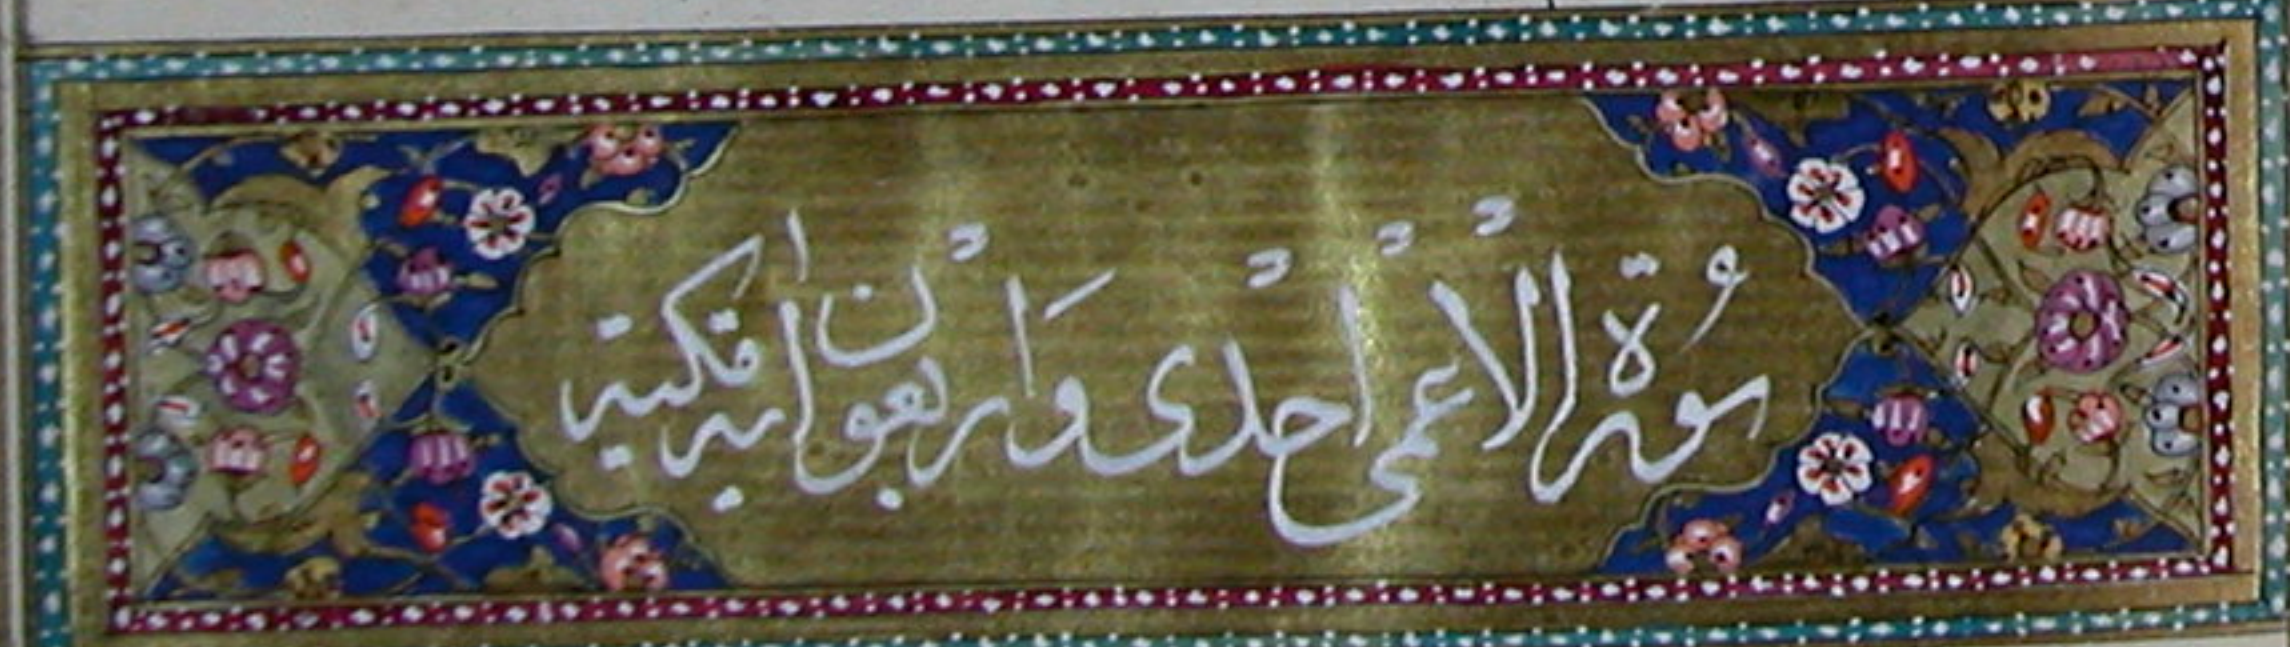 سُورة الْاعْمى احْدى وَارْبعون اٰية مكية